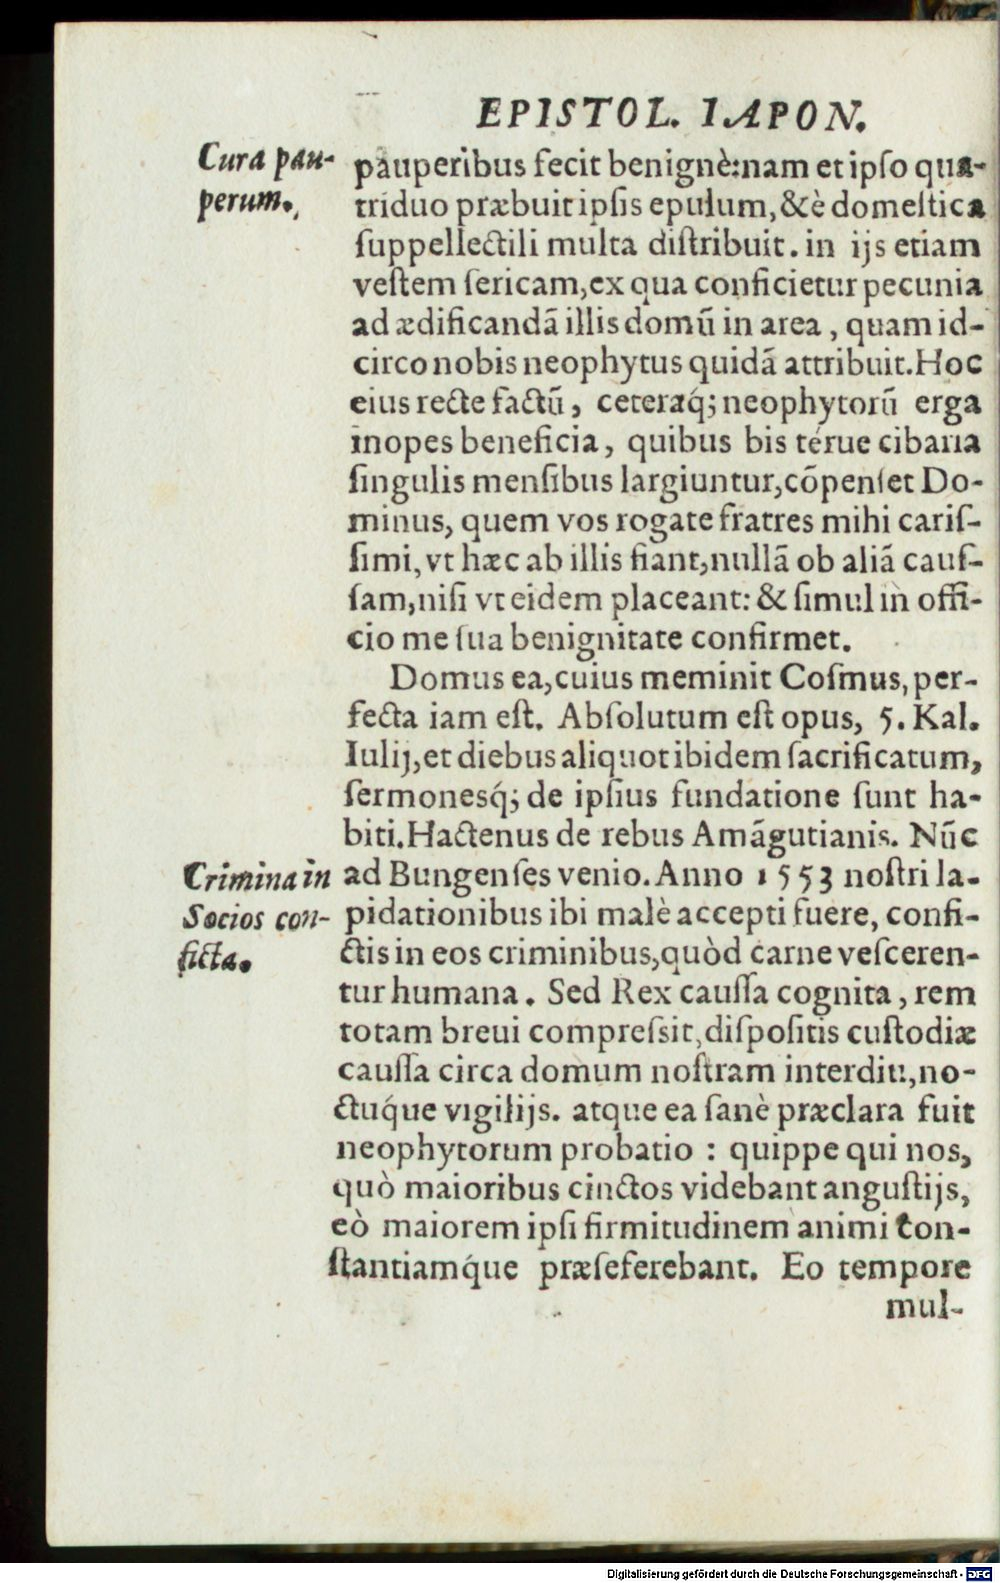 EPISTOL. IAPON.
Cura pau-
perum.
pauperibus fecit benignè: nam et ipso qua-
triduo præbuit ipsis epulum, & è domestica
suppellectili multa distribuit. in ijs etiam
vestem sericam, ex qua conficietur pecunia
ad ædificandã illis domũ in area, quam id-
circo nobis neophytus quidã attribuit. Hoc
eius recte factũ, ceteraq́; neophytorũ erga
inopes beneficia, quibus bis térue cibaria
singulis mensibus largiuntur, cõpenset Do-
minus, quem vos rogate fratres mihi caris-
simi, vt hæc ab illis fiant, nullã ob aliã caus-
sam, nisi vt eidem placeant: & simul in offi-
cio me sua benignitate confirmet.
Domus ea, cuius meminit Cosmus, per-
fecta iam est. Absolutum est opus, 5. Kal.
Iulij, et diebus aliquot ibidem sacrificatum,
sermonesq́; de ipsius fundatione sunt ha-
biti. Hactenus de rebus Amãgutianis. Nũc
Crimina in
Socios con-
ficta.
ad Bungenses venio. Anno 1553 nostri la-
pidationibus ibi malè accepti fuere, confi-
ctis in eos criminibus, quòd carne vesceren-
tur humana. Sed Rex caussa cognita, rem
totam breui compressit, dispositis custodiæ
caussa circa domum nostram interdiu, no-
ctuq́ue vigilijs. atque ea sanè præclara fuit
neophytorum probatio : quippe qui nos,
quò maioribus cinctos videbant angustijs,
eò maiorem ipsi firmitudinem animi con-
stantiamq́ue præseferebant. Eo tempore
mul-
Digitalisierung gefördert durch die Deutsche Forschungsgemeinschaft - DFG